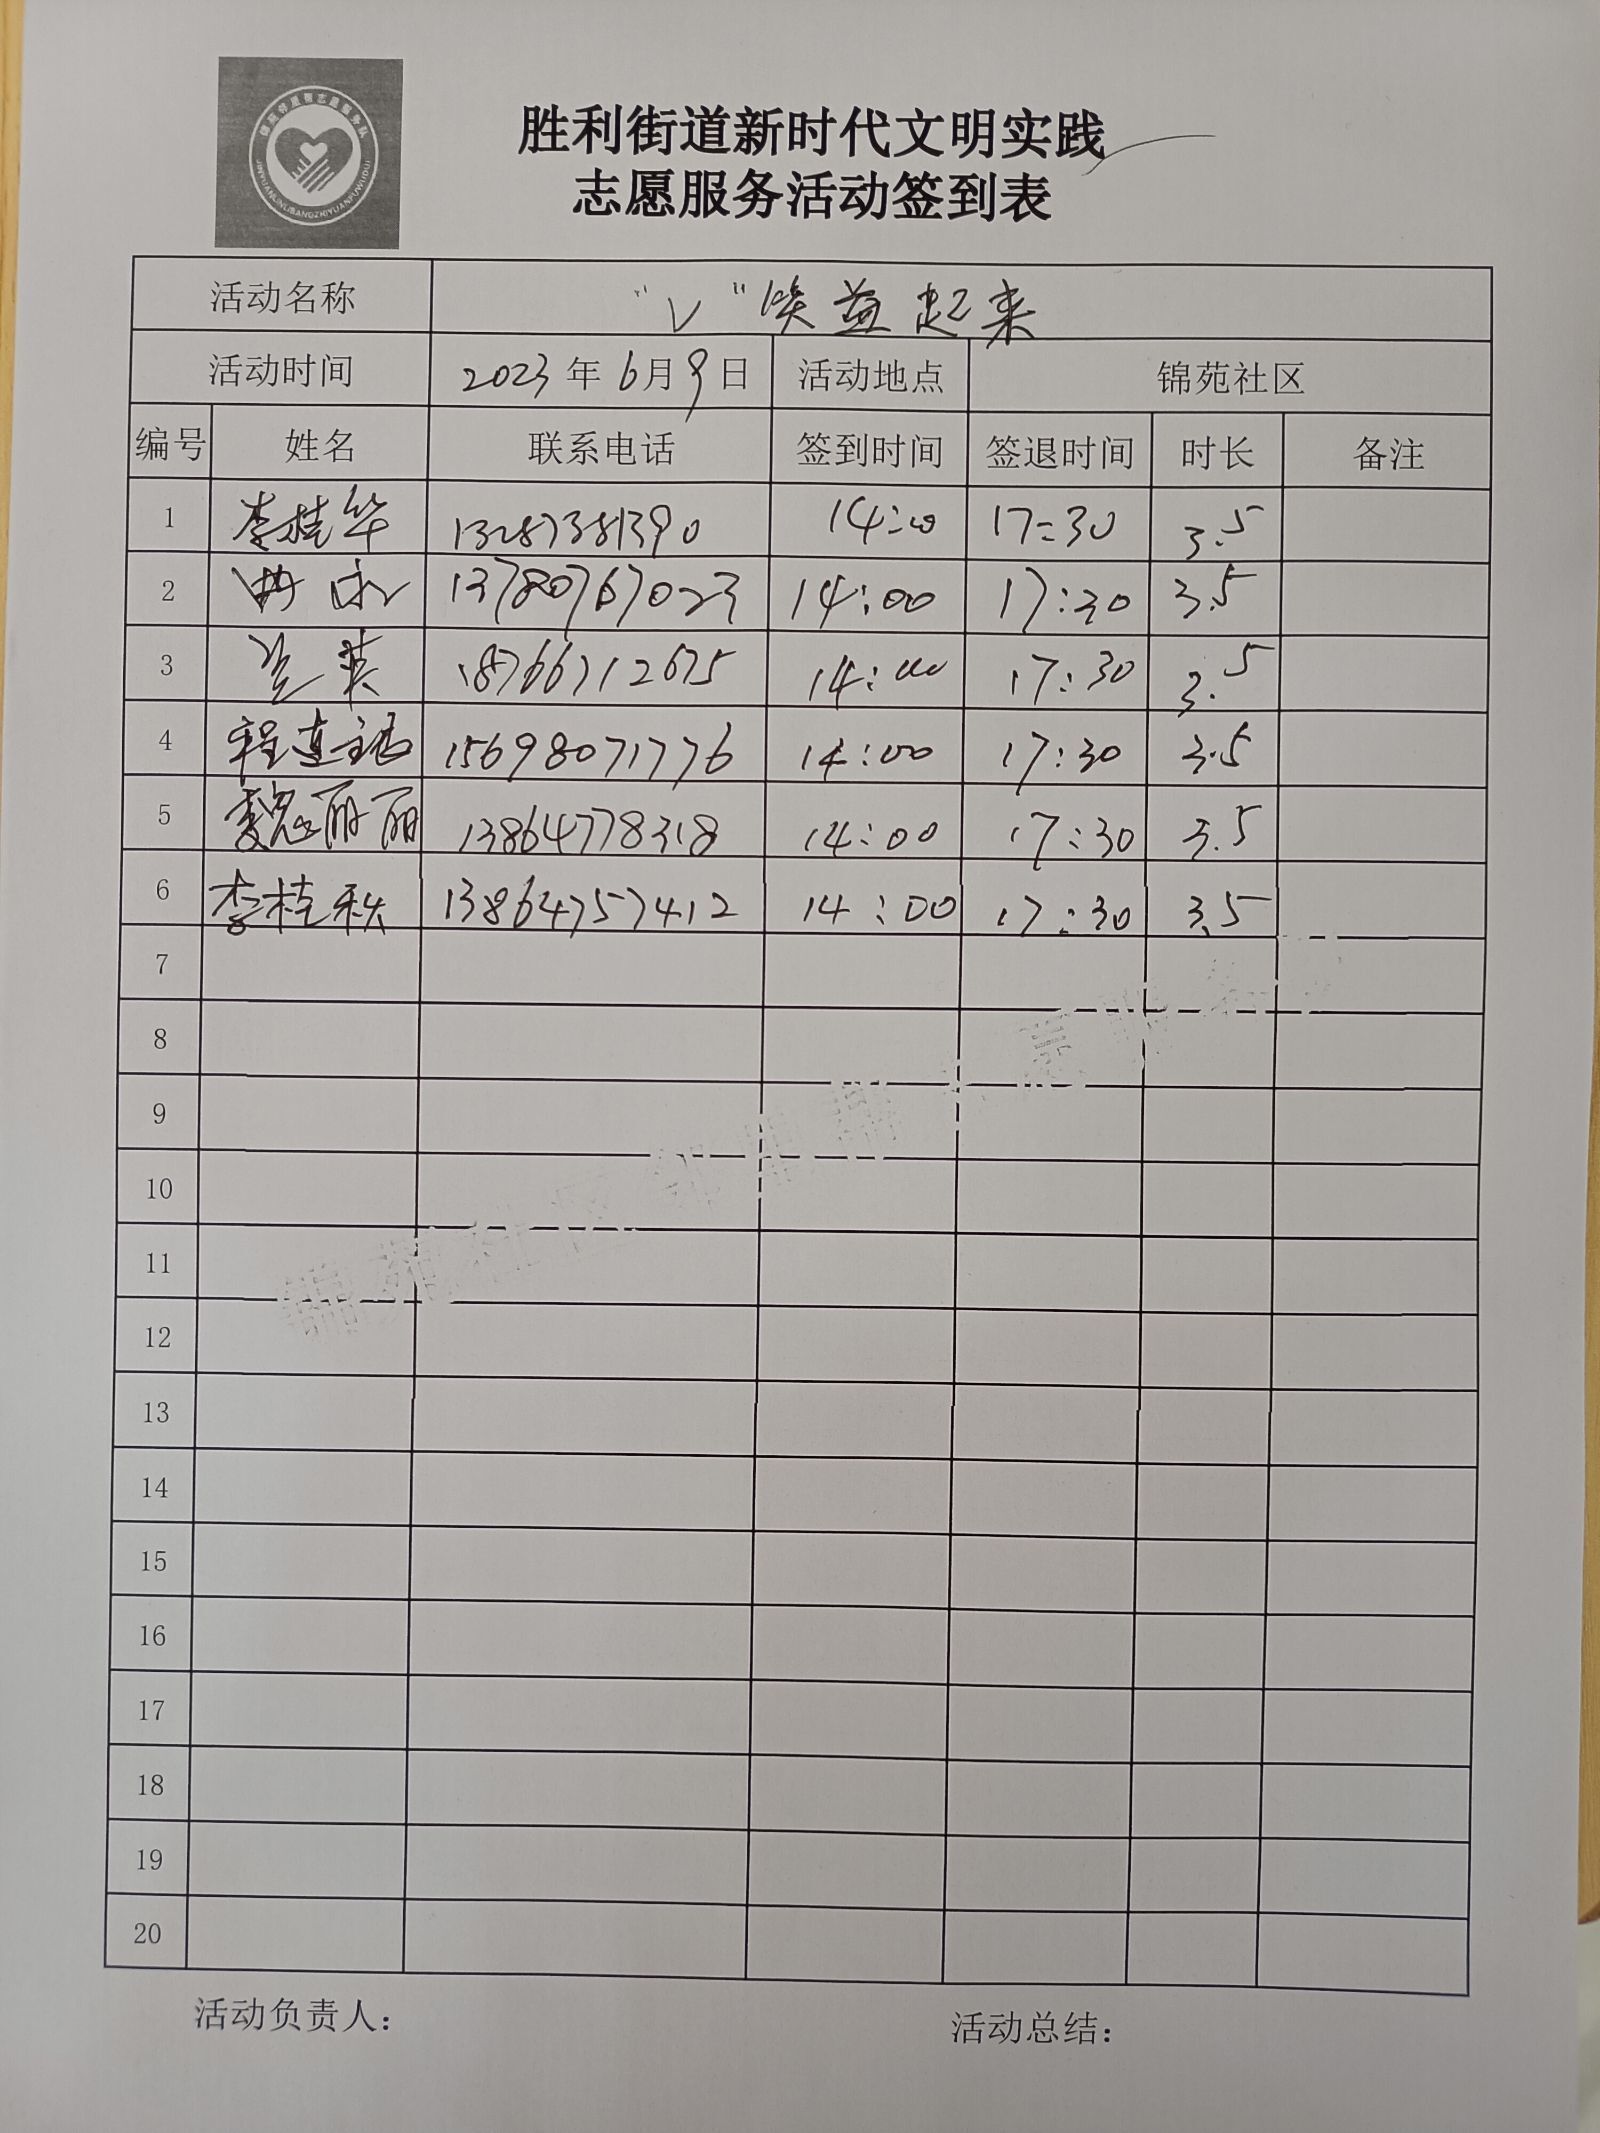 锦苑邻里帮志愿服务队
JINYUANLINLIBANGZHIYUANFUWUDUI
胜利街道新时代文明实践
志愿服务活动签到表
活动名称 "V"唤益起来
活动时间 2023年6月9日 活动地点 锦苑社区
编号 姓名 联系电话 签到时间 签退时间 时长 备注
1 李桂华 13287381390 14:00 17:30 3.5
2 13780767023 14:00 17:30 3.5
3 18766712675 14:00 17:30 3.5
4 程 15698071776 14:00 17:30 3.5
5 魏丽丽 13864778318 14:00 17:30 3.5
6 李桂秋 13864757412 14:00 17:30 3.5
7
8
9
10
11
12
13
14
15
16
17
18
19
20
活动负责人: 活动总结: